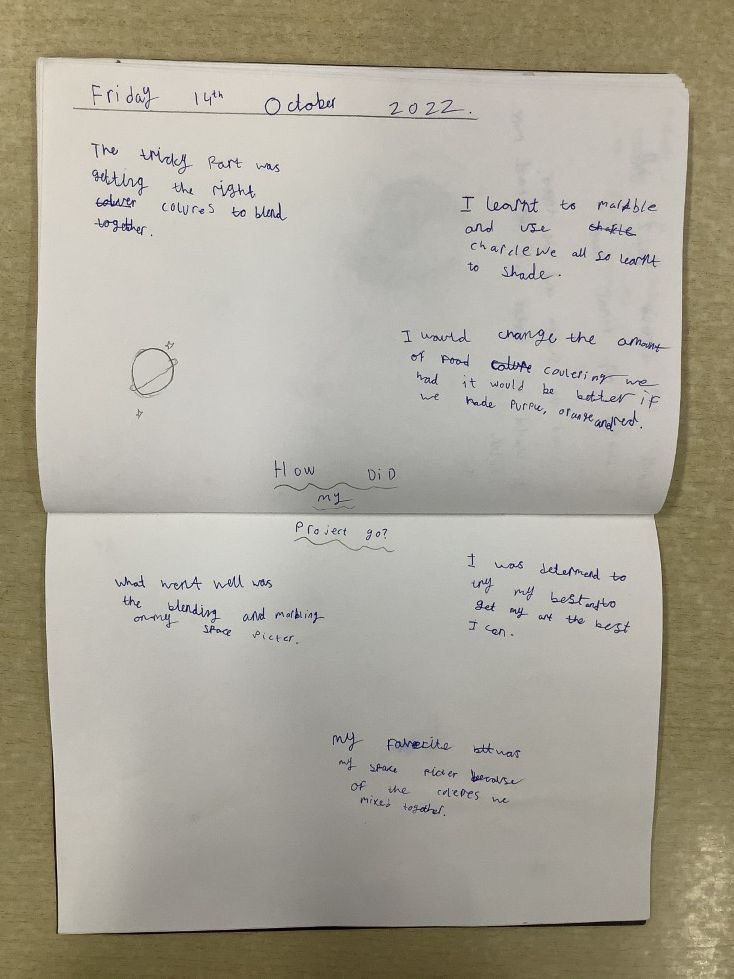 Friday 14th October 2022.
The tricky Part was
getting the right
coluver colures to blend
together.
I learnt to marbble
and use chakle
charcle we all so learnt
to shade.
I would change the amount
of food coulering we
had it would be better if
we made Purple, orange and red.
How DiD
my
Project go?
what went well was
the blending and marbling
on my space Picter.
I was determend to
try my best and to
get my art the best
I can.
my Favecite bit was
my space Picter because
of the coleres we
mixed together.